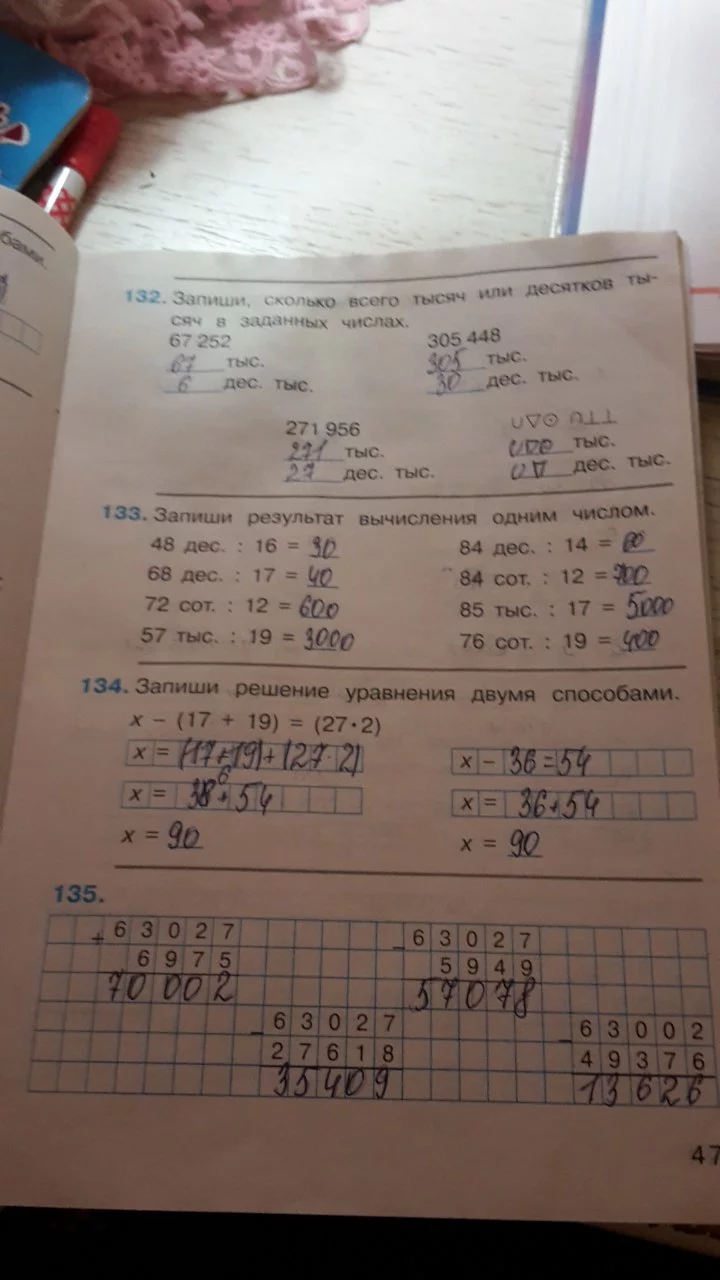 бами.
132. Запиши, сколько всего тысяч или десятков ты-
сяч в заданных числах.
67 252
67 тыс.
6 дес. тыс.
305 448
305 тыс.
30 дес. тыс.
271 956
271 тыс.
27 дес. тыс.
∪▽⊙ ∩⊥⊥
∪▽⊙ тыс.
∪▽ дес. тыс.
133. Запиши результат вычисления одним числом.
48 дес. : 16 = 30
68 дес. : 17 = 40
72 сот. : 12 = 600
57 тыс. : 19 = 3000
84 дес. : 14 = 60
84 сот. : 12 = 700
85 тыс. : 17 = 5000
76 сот. : 19 = 400
134. Запиши решение уравнения двумя способами.
x − (17 + 19) = (27·2)
x = (17+19)+(27·2)
x = 36+54
x = 90
x − 36=54
x = 36+54
x = 90
135.
+ 63027
6975
70002
− 63027
5949
57078
− 63027
27618
35409
− 63002
49376
13626
47